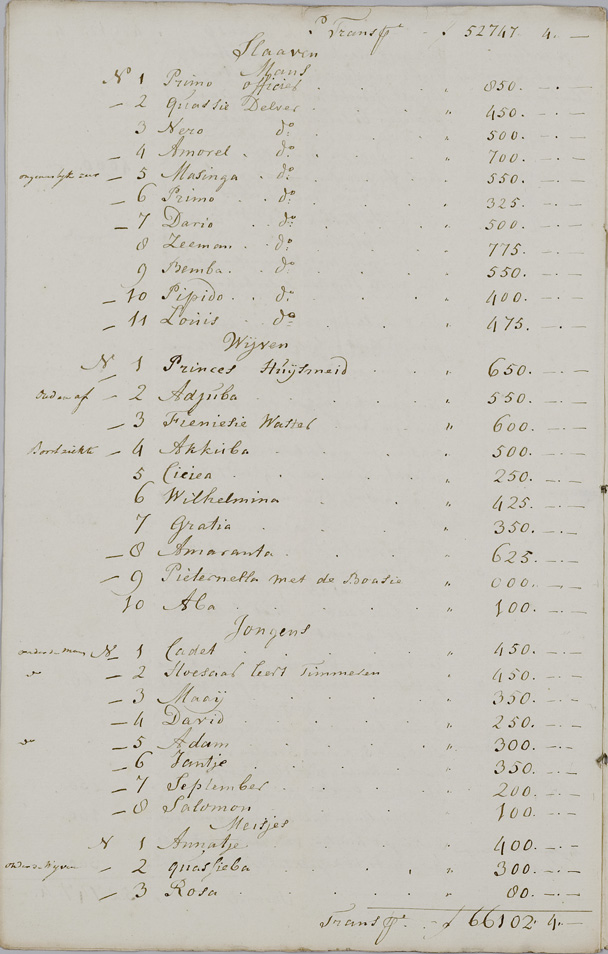 P.r Transp.t f 52747. 4. —
Slaaven
Mans
N.o 1 Primo officier 850. — . —
— 2 Quassie Delver " 450. — . —
3 Nero d.o " 500. — . —
— 4 Amorel d.o " 700. — . —
— 5 Masinga d.o " 550. — . —
— 6 Primo d.o " 325. — . —
— 7 Dario d.o " 500. — . —
8 Zeeman d.o " 775. — . —
9 Bemba d.o " 550. — . —
— 10 Pipido d.o " 400. — . —
— 11 Louis d.o " 475. — . —
Wijven
N 1 Princes Huijsmeid " 650. — . —
— 2 Adjuba " 550. — . —
— 3 " 600. — . —
— 4 Akkuba " 500. — . —
5 " 250. — . —
6 Wilhelmina " 425. — . —
7 Gratia " 350. — . —
— 8 Amaranta " 625. — . —
— 9 Pieternella met de Boasie " 000. — . —
10 Aba " 100. — . —
Jongens
N 1 Cadet " 450. — . —
— 2 leert Timmeren " 450. — . —
— 3 Maaij " 350. — . —
— 4 David " 250. — . —
d.o — 5 Adam " 300. — . —
— 6 Jantje " 350. — . —
— 7 September " 200. — . —
— 8 Salomon " 100. — . —
Meisjes
N 1 Annatje " 400. — . —
— 2 Quassieba " 300. — . —
— 3 Rosa " 80. — . —
Transp.t f 66102. 4. —